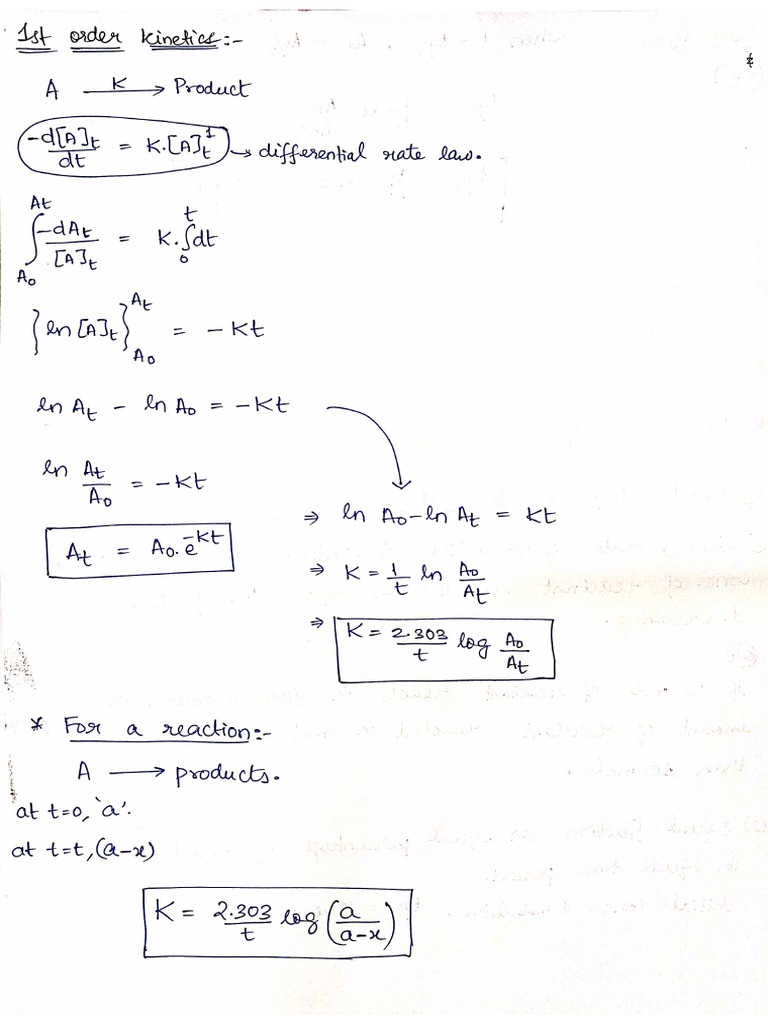 1st order kinetics:-
A —K→ Product
-d[A]t/dt = K.[A]t^1 → differential rate law.
∫_{A0}^{At} -dAt/[A]t = K.∫_0^t dt
}ln [A]t}_{A0}^{At} = -Kt
ln At - ln A0 = -Kt
ln At/A0 = -Kt
At = A0.e^-Kt
⇒ ln A0 - ln At = Kt
⇒ K = 1/t ln A0/At
⇒ K = 2.303/t log A0/At
* For a reaction:-
A → products.
at t=0, 'a'.
at t=t, (a-x)
K = 2.303/t log(a/a-x)